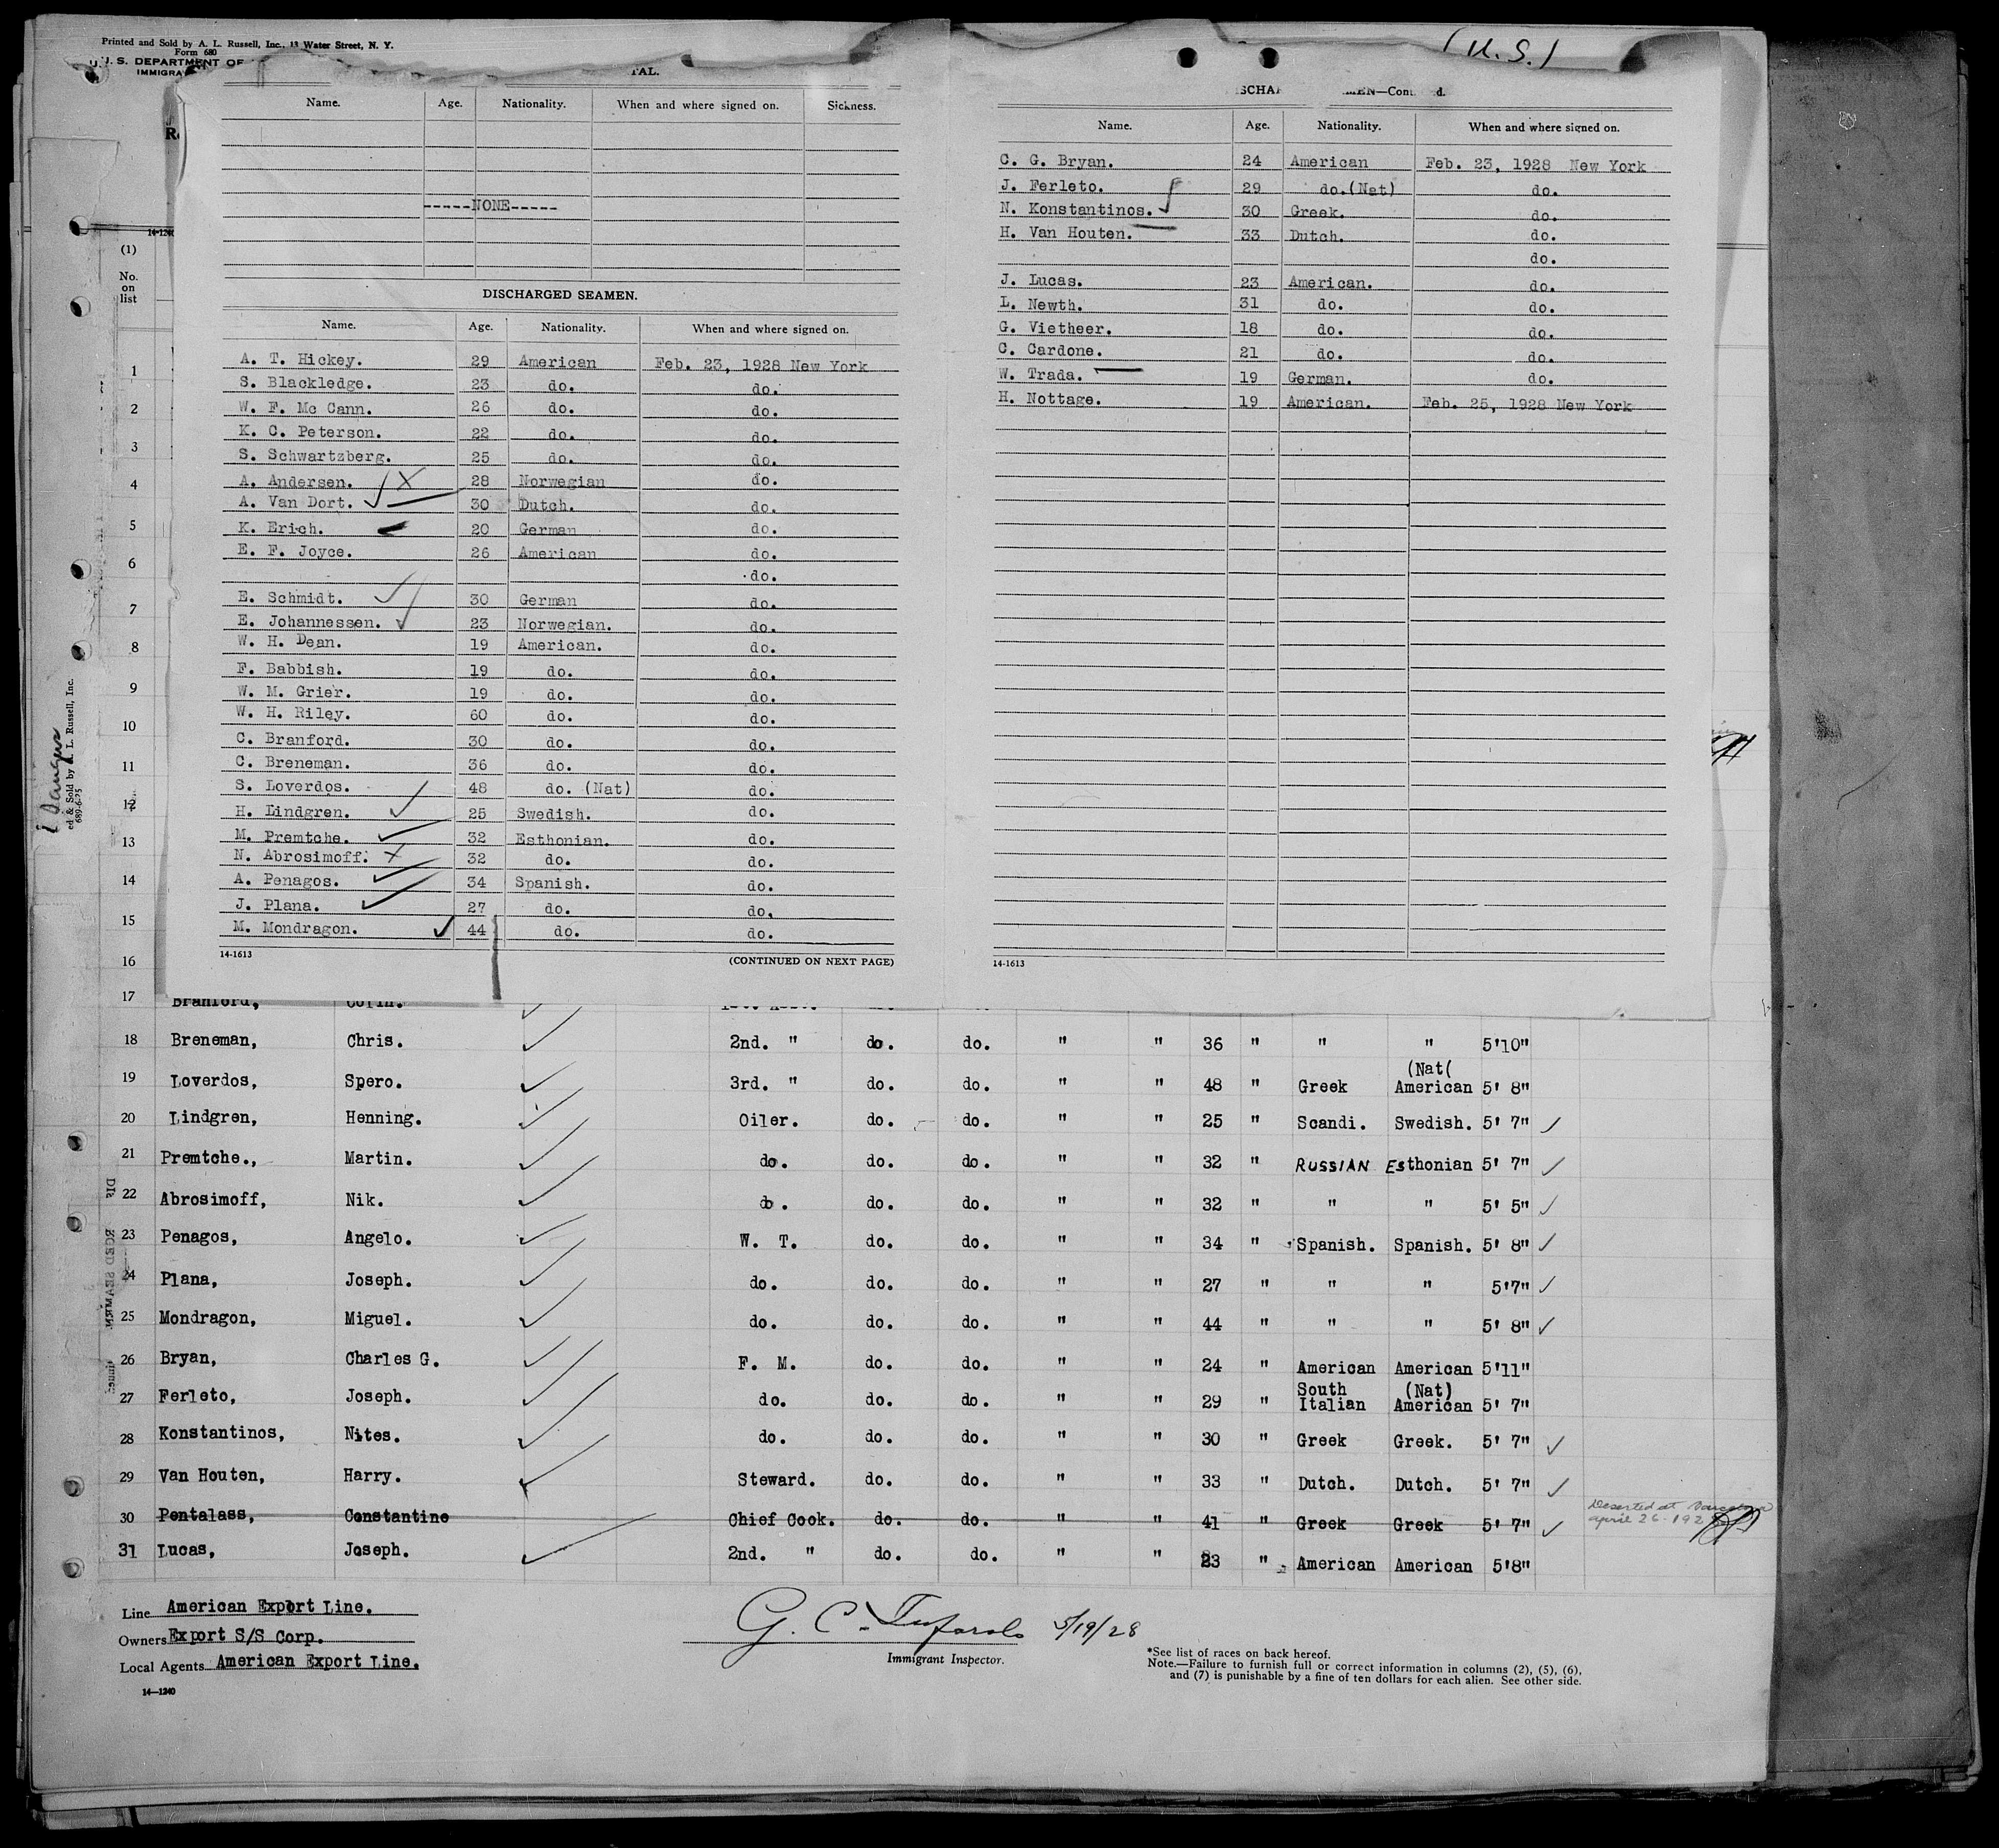 Printed and Sold by A. L. Russell, Inc., 13 Water Street, N. Y.
Form 680
U. S. DEPARTMENT OF
(U. S.)
Name. Age. Nationality. When and where signed on. Sickness.
-----NONE-----
DISCHARGED SEAMEN.
Name. Age. Nationality. When and where signed on.
A. T. Hickey. 29 American Feb. 23, 1928 New York
S. Blackledge. 23 do. do.
W. F. Mc Cann. 26 do. do.
K. C. Peterson. 22 do. do.
S. Schwartzberg. 25 do. do.
A. Andersen. 28 Norwegian do.
A. Van Dort. 30 Dutch. do.
K. Erich. 20 German do.
E. F. Joyce. 26 American do.
do.
E. Schmidt. 30 German do.
E. Johannessen. 23 Norwegian. do.
W. H. Dean. 19 American. do.
F. Babbish. 19 do. do.
W. M. Grier. 19 do. do.
W. H. Riley. 60 do. do.
C. Branford. 30 do. do.
C. Breneman. 36 do. do.
S. Loverdos. 48 do. (Nat) do.
H. Lindgren. 25 Swedish. do.
M. Premtche. 32 Esthonian. do.
N. Abrosimoff. 32 do. do.
A. Penagos. 34 Spanish. do.
J. Plana. 27 do. do.
M. Mondragon. 44 do. do.
14-1613 (CONTINUED ON NEXT PAGE)
Name. Age. Nationality. When and where signed on.
C. G. Bryan. 24 American Feb. 23, 1928 New York
J. Ferleto. 29 do.(Nat) do.
N. Konstantinos. 30 Greek. do.
H. Van Houten. 33 Dutch. do.
do.
J. Lucas. 23 American. do.
L. Newth. 31 do. do.
G. Vietheer. 18 do. do.
C. Cardone. 21 do. do.
W. Trada. 19 German. do.
H. Nottage. 19 American. Feb. 25, 1928 New York
14-1613
(1)
No.
on
list
1
2
3
4
5
6
7
8
9
10
11
12
13
14
15
16
17 Branford, Colin.
18 Breneman, Chris. 2nd. " do. do. " " 36 " " " 5'10"
19 Loverdos, Spero. 3rd. " do. do. " " 48 " Greek (Nat( American 5' 8"
20 Lindgren, Henning. Oiler. do. do. " " 25 " Scandi. Swedish. 5' 7"
21 Premtche., Martin. do. do. do. " " 32 " RUSSIAN Esthonian 5' 7"
22 Abrosimoff, Nik. do. do. do. " " 32 " " " 5' 5"
23 Penagos, Angelo. W. T. do. do. " " 34 " Spanish. Spanish. 5' 8"
24 Plana, Joseph. do. do. do. " " 27 " " " 5'7"
25 Mondragon, Miguel. do. do. do. " " 44 " " " 5' 8"
26 Bryan, Charles G. F. M. do. do. " " 24 " American American 5'11"
27 Ferleto, Joseph. do. do. do. " " 29 " South Italian (Nat) American 5' 7"
28 Konstantinos, Nites. do. do. do. " " 30 " Greek Greek. 5' 7"
29 Van Houten, Harry. Steward. do. do. " " 33 " Dutch. Dutch. 5' 7"
30 Pentalass, Constantine Chief Cook. do. do. " " 41 " Greek Greek 5' 7" Deserted at Barcelona april 26-192
31 Lucas, Joseph. 2nd. " do. do. " " 23 " American American 5'8"
Line American Export Line.
Owners Export S/S Corp.
Local Agents American Export Line.
14—1240
G. C. 5/19/28
Immigrant Inspector.
*See list of races on back hereof.
Note.—Failure to furnish full or correct information in columns (2), (5), (6),
and (7) is punishable by a fine of ten dollars for each alien. See other side.
ed & Sold by A. L. Russell, Inc.
689-6-25